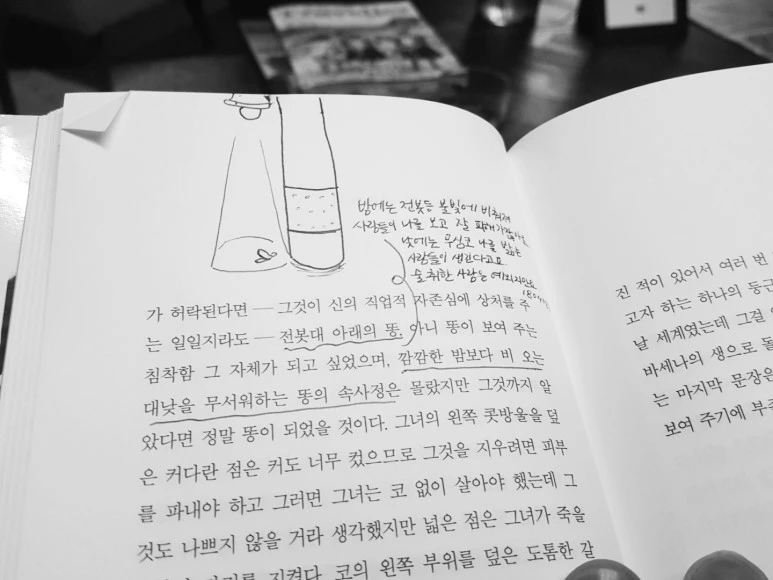 밤에는 전봇등 불빛에 비춰져
사람들이 나를 보고 잘 피해가잖아요
낮에는 무심코 나를 밟는
사람들이 생긴다고요
술 취한 사람들 예외지만요
가 허락된다면 — 그것이 신의 직업적 자존심에 상처를 주
는 일일지라도 — 전봇대 아래의 똥, 아니 똥이 보여 주는
침착함 그 자체가 되고 싶었으며, 깜깜한 밤보다 비 오는
대낮을 무서워하는 똥의 속사정은 몰랐지만 그것까지 알
았다면 정말 똥이 되었을 것이다. 그녀의 왼쪽 콧방울을 덮
은 커다란 점은 커도 너무 컸으므로 그것을 지우려면 피부
를 파내야 하고 그러면 그녀는 코 없이 살아야 했는데 그
것도 나쁘지 않을 거라 생각했지만 넓은 점은 그녀가 죽을
지켰다. 코의 왼쪽 부위를 덮은 도톰한 갈
진 적이 있어서 여러 번
고자 하는 하나의 둥근
날 세계였는데 그걸
바세나의 생으로 돌
는 마지막 문장은
보여 주기에 부족